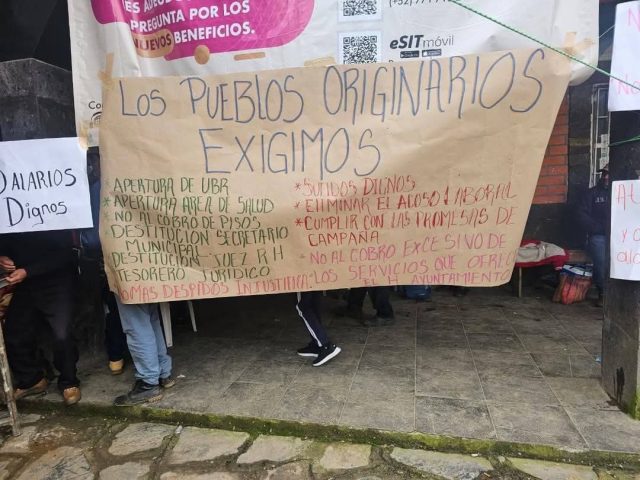 PREGUNTA POR LOS
NUEVOS BENEFICIOS.
eSIT móvil
LOS PUEBLOS ORIGINARIOS
EXIGIMOS
*APERTURA DE UBR
*APERTURA AREA DE SALUD
*NO AL COBRO DE PISOS
DESTITUCIÓN SECRETARIO
MUNICIPAL
DESTITUCIÓN JUEZ RH
TESORERO JURÍDICO
NO MAS DESPADOS INJUSTIFICA
*SULIDOS DIGNOS
*ELIMINAR EL ACOSO LABORAL
*CUMPLIR CON LAS PROMESAS DE
CAMPAÑA
NO AL COBRO EXCESIVO DE
LOS SERVICIOS QUE OFRECE
EL H AYUNTAMIENTO
SALARIOS
Dignos